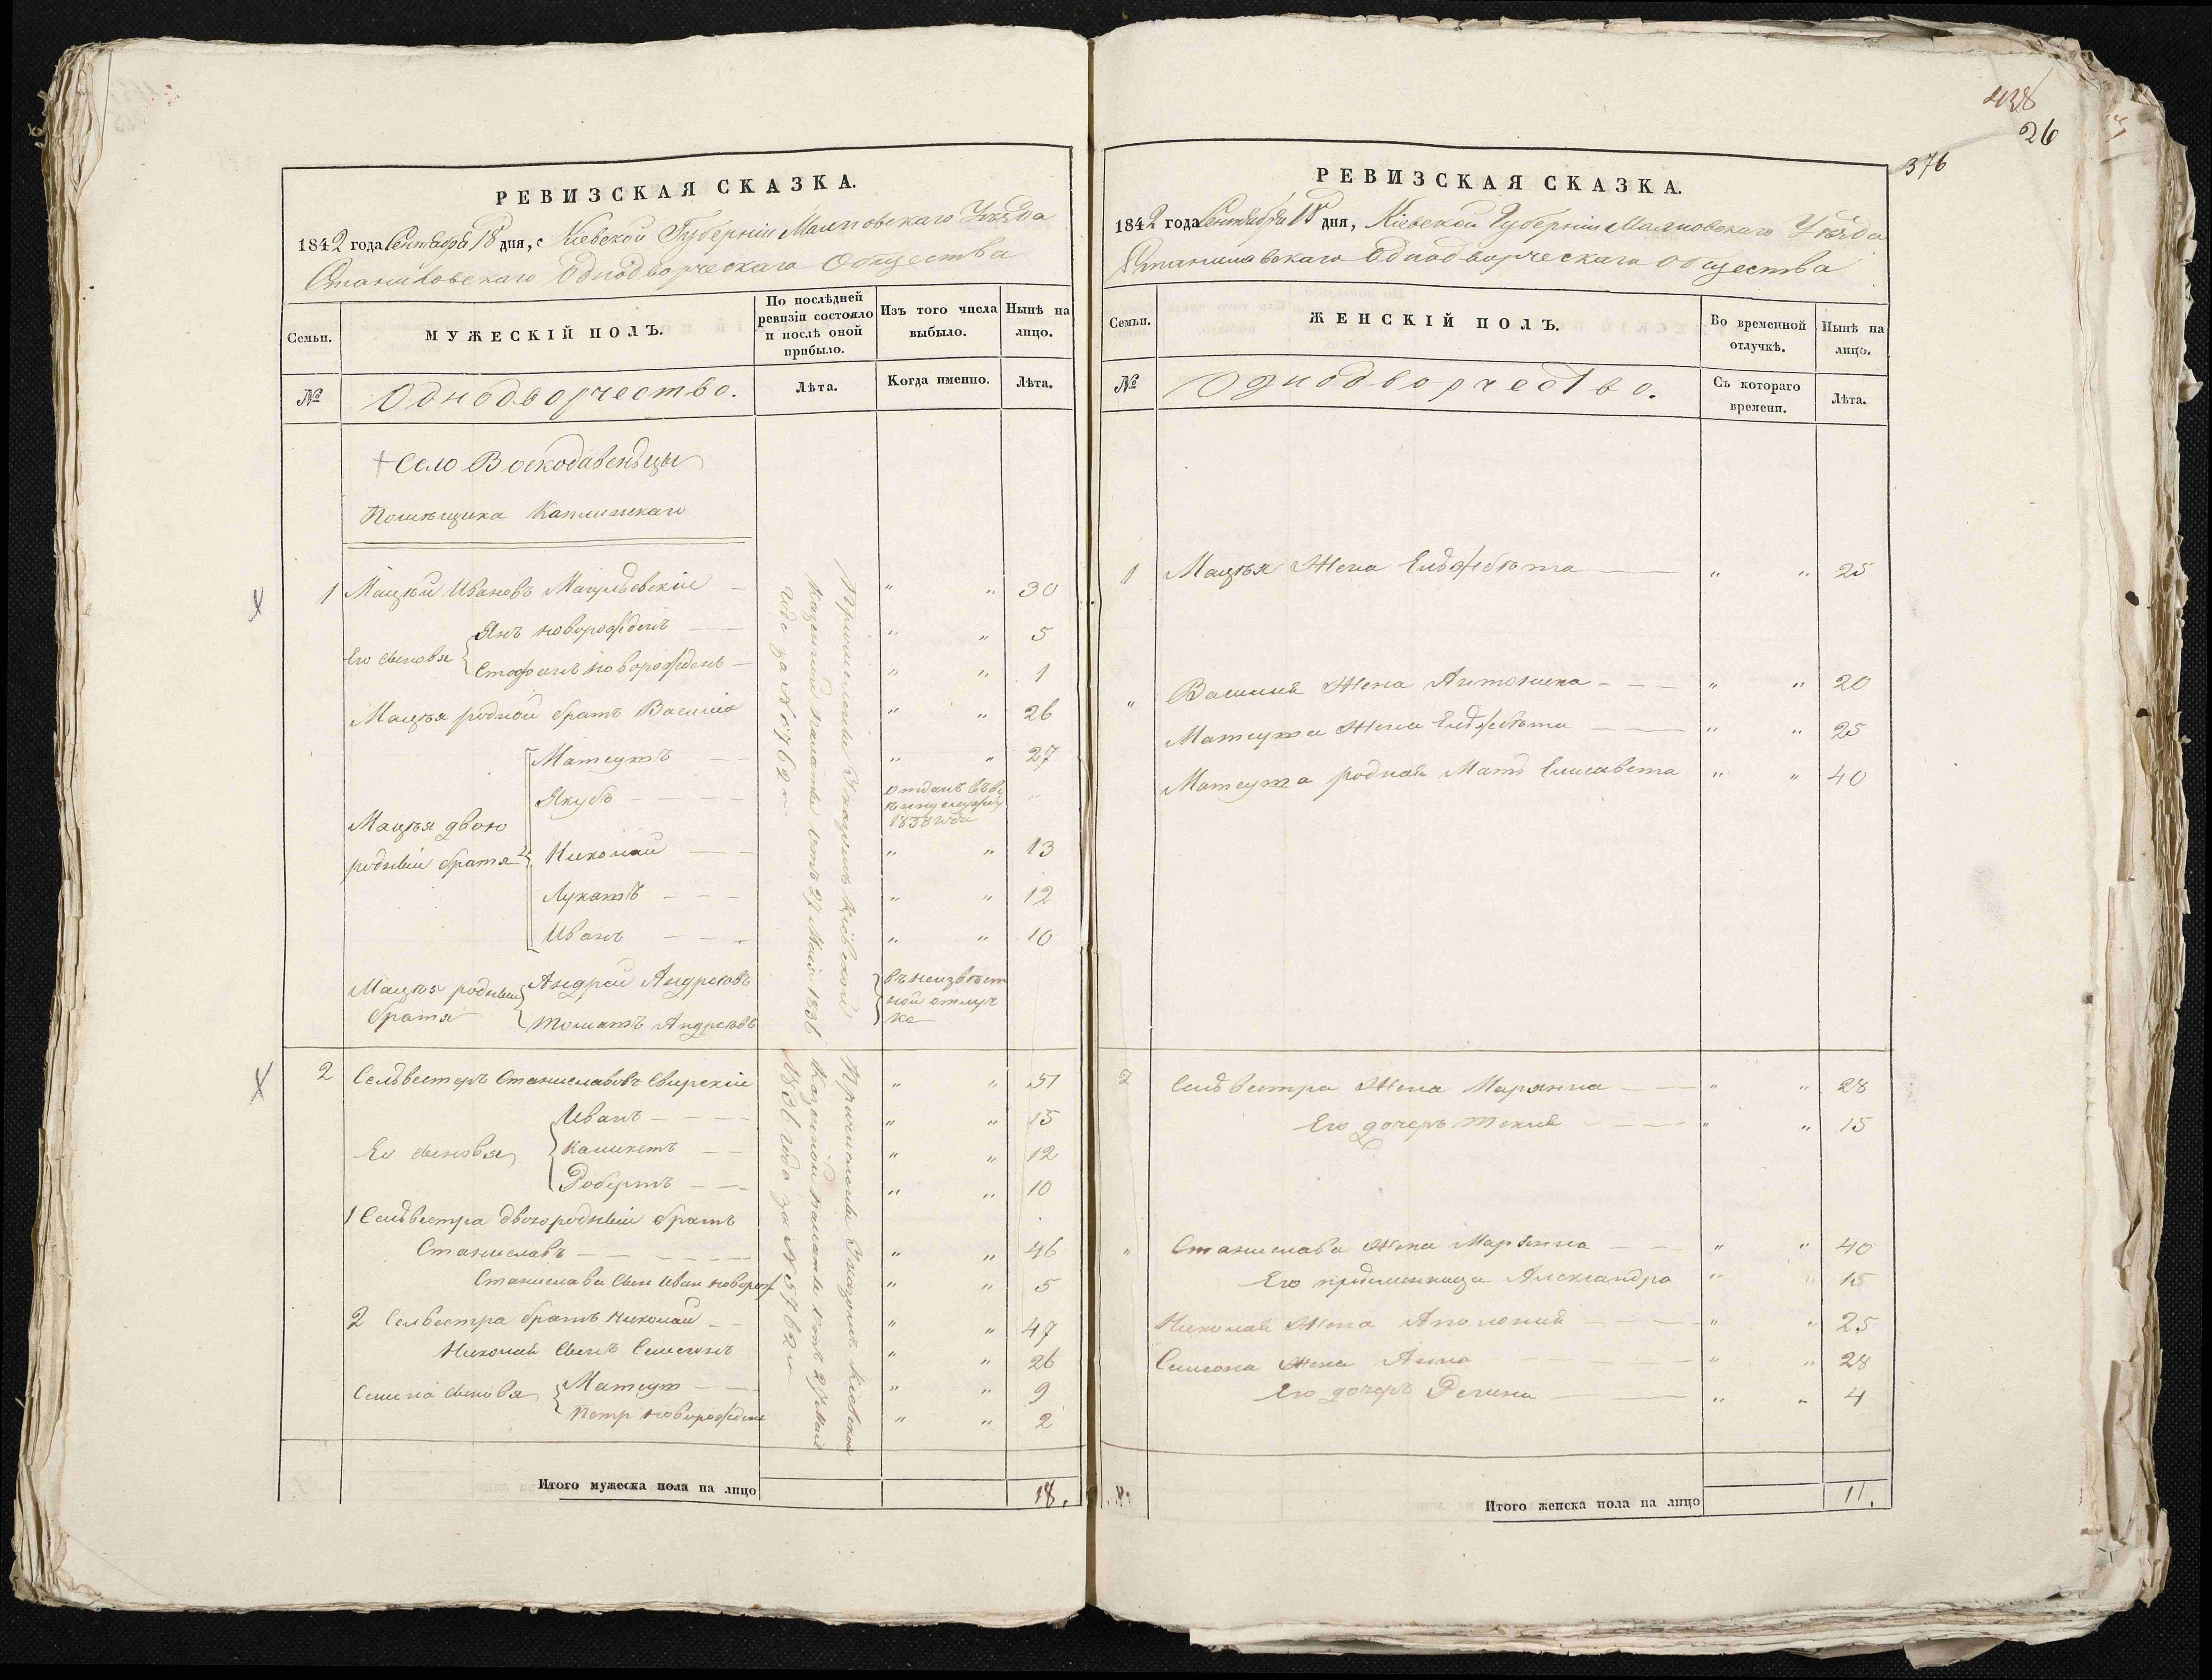 РЕВИЗСКАЯ СКАЗКА.
1842 года Сентября 18 дня, Кіевской Губерніи Уѣзда
Однодворческаго Общества
Семьи.
МУЖЕСКІЙ ПОЛЪ.
По послѣдней ревизіи состояло и послѣ оной прибыло.
Изъ того числа выбыло.
Нынѣ на лицо.
№
Однодворчество.
Лѣта.
Когда именно.
Лѣта.
Село
Помѣщика
1 Мацѣй Ивановъ " " 30
Его сыновья
Янъ новорожденъ " " 5
Стефанъ новорожденъ " " 1
Мацѣя родной братъ Василій " " 26
Мацѣя двою
родныи братья
Матеушъ " " 27
Якубъ
1838 года
Николай " " 13
Лукашъ " " 12
Иванъ " " 10
Мацѣя родныи
братья
Андрей Андреевъ
Томашъ Андреевъ
въ неизвѣст
ной отлуч
ке
Причислены Указомъ Кіевской
Казенной палаты отъ 27 Мая 1836
года за № 5762м
2 Сельвестеръ Станиславовъ Свирскій " " 51
Его сыновья
Иванъ " " 15
" " 12
Робертъ " " 10
1 Сельвестра двоюродный братъ
Станиславъ " " 46
Станислава сын Иван новорож " " 5
2 Сельвестра братъ Николай " " 47
Николая сынъ Симеонъ " " 26
Симеона сыновья
Матеуш " " 9
Петр новорожден " " 2
Причислены Указомъ Кіевской
Казенной палаты отъ 27 мая
1836 года за № 5762м
Итого мужеска пола на лицо
18.
438
26
376
РЕВИЗСКАЯ СКАЗКА.
1842 года Сентября 18 дня, Кіевской Губерніи Уѣзда
Однодворческаго Общества
Семьи.
ЖЕНСКІЙ ПОЛЪ.
Во временной отлучкѣ.
Нынѣ на лицо.
№
Однодворчество.
Съ котораго времени.
Лѣта.
1 Мацѣя Жена Ельжбѣта " " 25
" Василія Жена Антонина " " 20
Матеуша Жена Ельжбѣта " " 25
Матеуша родная Мать Елисавета " " 40
2 Сельвестра Жена Марянна " " 28
Его дочерь Текля " " 15
" Станислава Жена Марянна " " 40
Его Александра " " 15
Николая Жена Аполонія " " 25
Симеона Жена Анна " " 28
Его дочерь Регина " " 4
Итого женска пола на лицо
11.